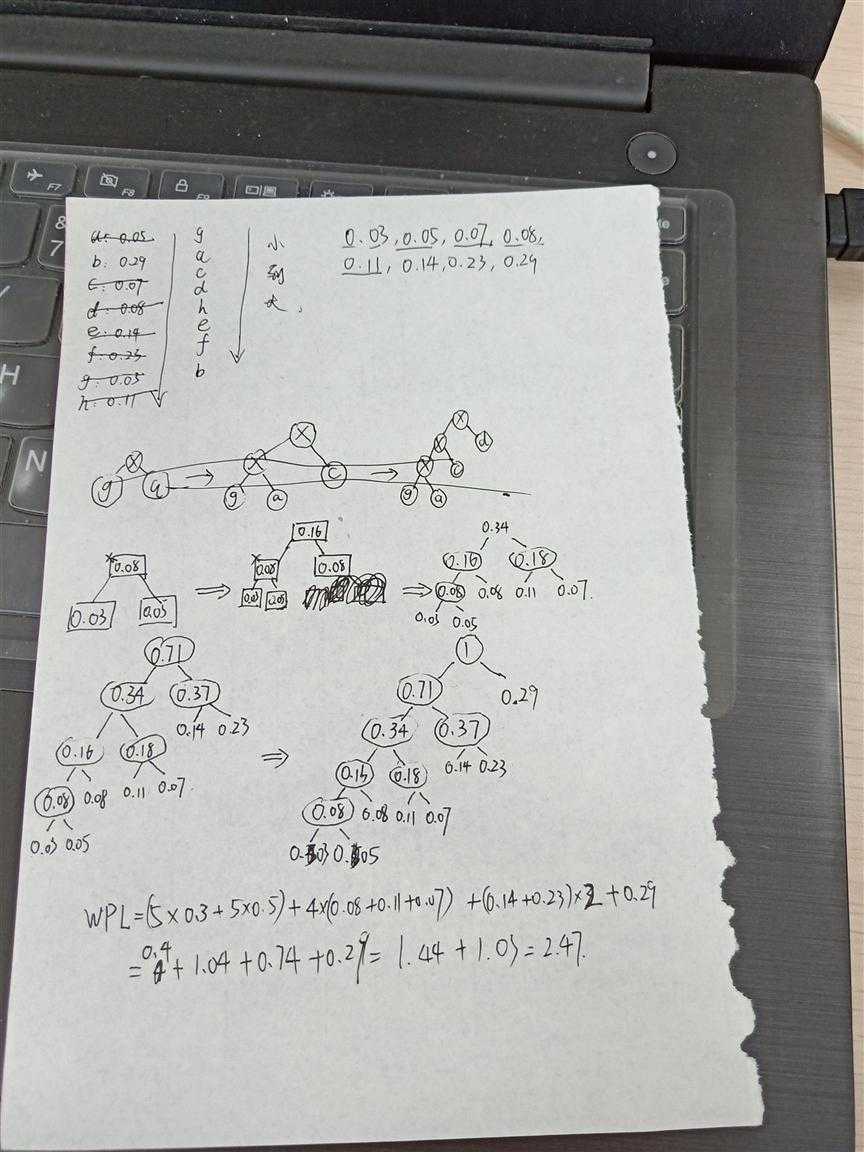 F7
F8
F9
&
7
Y
H
N
a: 0.05
b: 0.29
c: 0.07
d: 0.08
e: 0.14
f: 0.23
g: 0.03
h: 0.11
g
a
c
d
h
e
f
b
小
到
大.
0.03, 0.05, 0.07, 0.08,
0.11, 0.14, 0.23, 0.29
X
g a → X X
g a C → X
X d
X c
g a
0.08
0.03 0.05 ⇒ 0.16
0.08 0.08
0.03 0.05 ⇒ 0.34
0.16 0.18
0.08 0.08 0.11 0.07.
0.03 0.05
0.71
0.34 0.37
0.16 0.18 0.14 0.23
0.08 0.08 0.11 0.07.
0.03 0.05
⇒
1
0.71 0.29
0.34 0.37
0.15 0.18 0.14 0.23
0.08 0.08 0.11 0.07
0.03 0.05
WPL=(5×0.3+5×0.5)+4×(0.08+0.11+0.07)+(0.14+0.23)×2+0.29
=0.4+1.04+0.74+0.29=1.44+1.03=2.47.